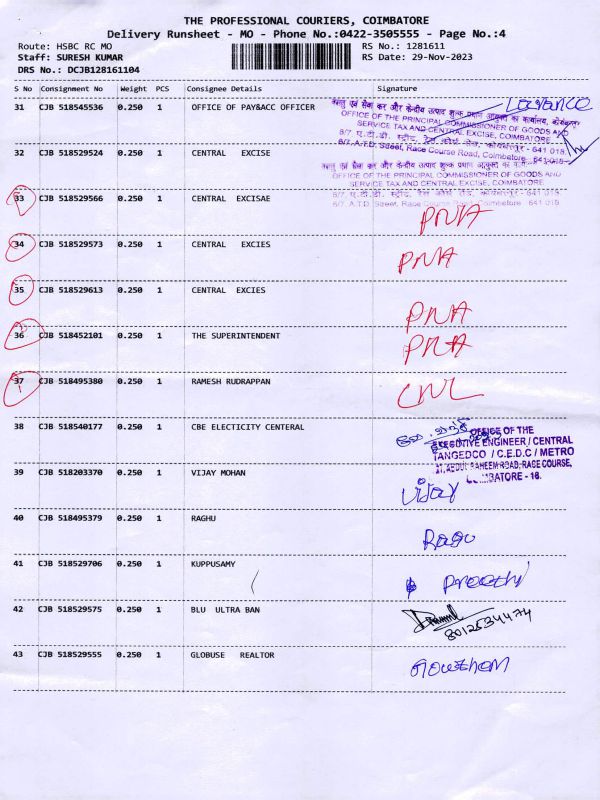 THE PROFESSIONAL COURIERS, COIMBATORE
Delivery Runsheet - MO - Phone No.:0422-3505555 - Page No.:4
Route: HSBC RC MO RS No.: 1281611
Staff: SURESH KUMAR RS Date: 29-Nov-2023
DRS No.: DCJB128161104
S No Consignment No Weight PCS Consignee Details Signature
31 CJB 518545536 0.250 1 OFFICE OF PAY&ACC OFFICER
OFFICE OF THE PRINCIPAL COMMISSIONER OF GOODS AND
SERVICE TAX AND CENTRAL EXCISE, COIMBATORE
6/7, A.T.D. Street, Race Course Road, Coimbatore - 641 018.
32 CJB 518529524 0.250 1 CENTRAL EXCISE
OFFICE OF THE PRINCIPAL COMMISSIONER OF GOODS AND
SERVICE TAX AND CENTRAL EXCISE, COIMBATORE
6/7, A.T.D. Street, Race Course Road, Coimbatore - 641 018.
33 CJB 518529566 0.250 1 CENTRAL EXCISAE PNA
34 CJB 518529573 0.250 1 CENTRAL EXCIES PNA
35 CJB 518529613 0.250 1 CENTRAL EXCIES PNA
36 CJB 518452101 0.250 1 THE SUPERINTENDENT PNA
37 CJB 518495380 0.250 1 RAMESH RUDRAPPAN CNL
38 CJB 518540177 0.250 1 CBE ELECTICITY CENTERAL
OFFICE OF THE
EXECUTIVE ENGINEER / CENTRAL
TANGEDCO / C.E.D.C / METRO
RAHEEM ROAD, RACE COURSE,
COIMBATORE - 18.
39 CJB 518203370 0.250 1 VIJAY MOHAN Vijay
40 CJB 518495379 0.250 1 RAGHU Ragu
41 CJB 518529706 0.250 1 KUPPUSAMY Preethi
42 CJB 518529575 0.250 1 BLU ULTRA BAN
8012534474
43 CJB 518529555 0.250 1 GLOBUSE REALTOR Gowtham